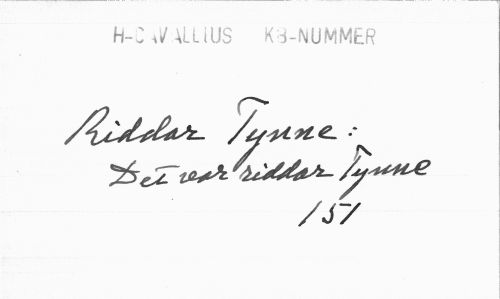 H-CAVALLIUS KB-NUMMER
Riddar Tynne:
Det var riddar Tynne
151